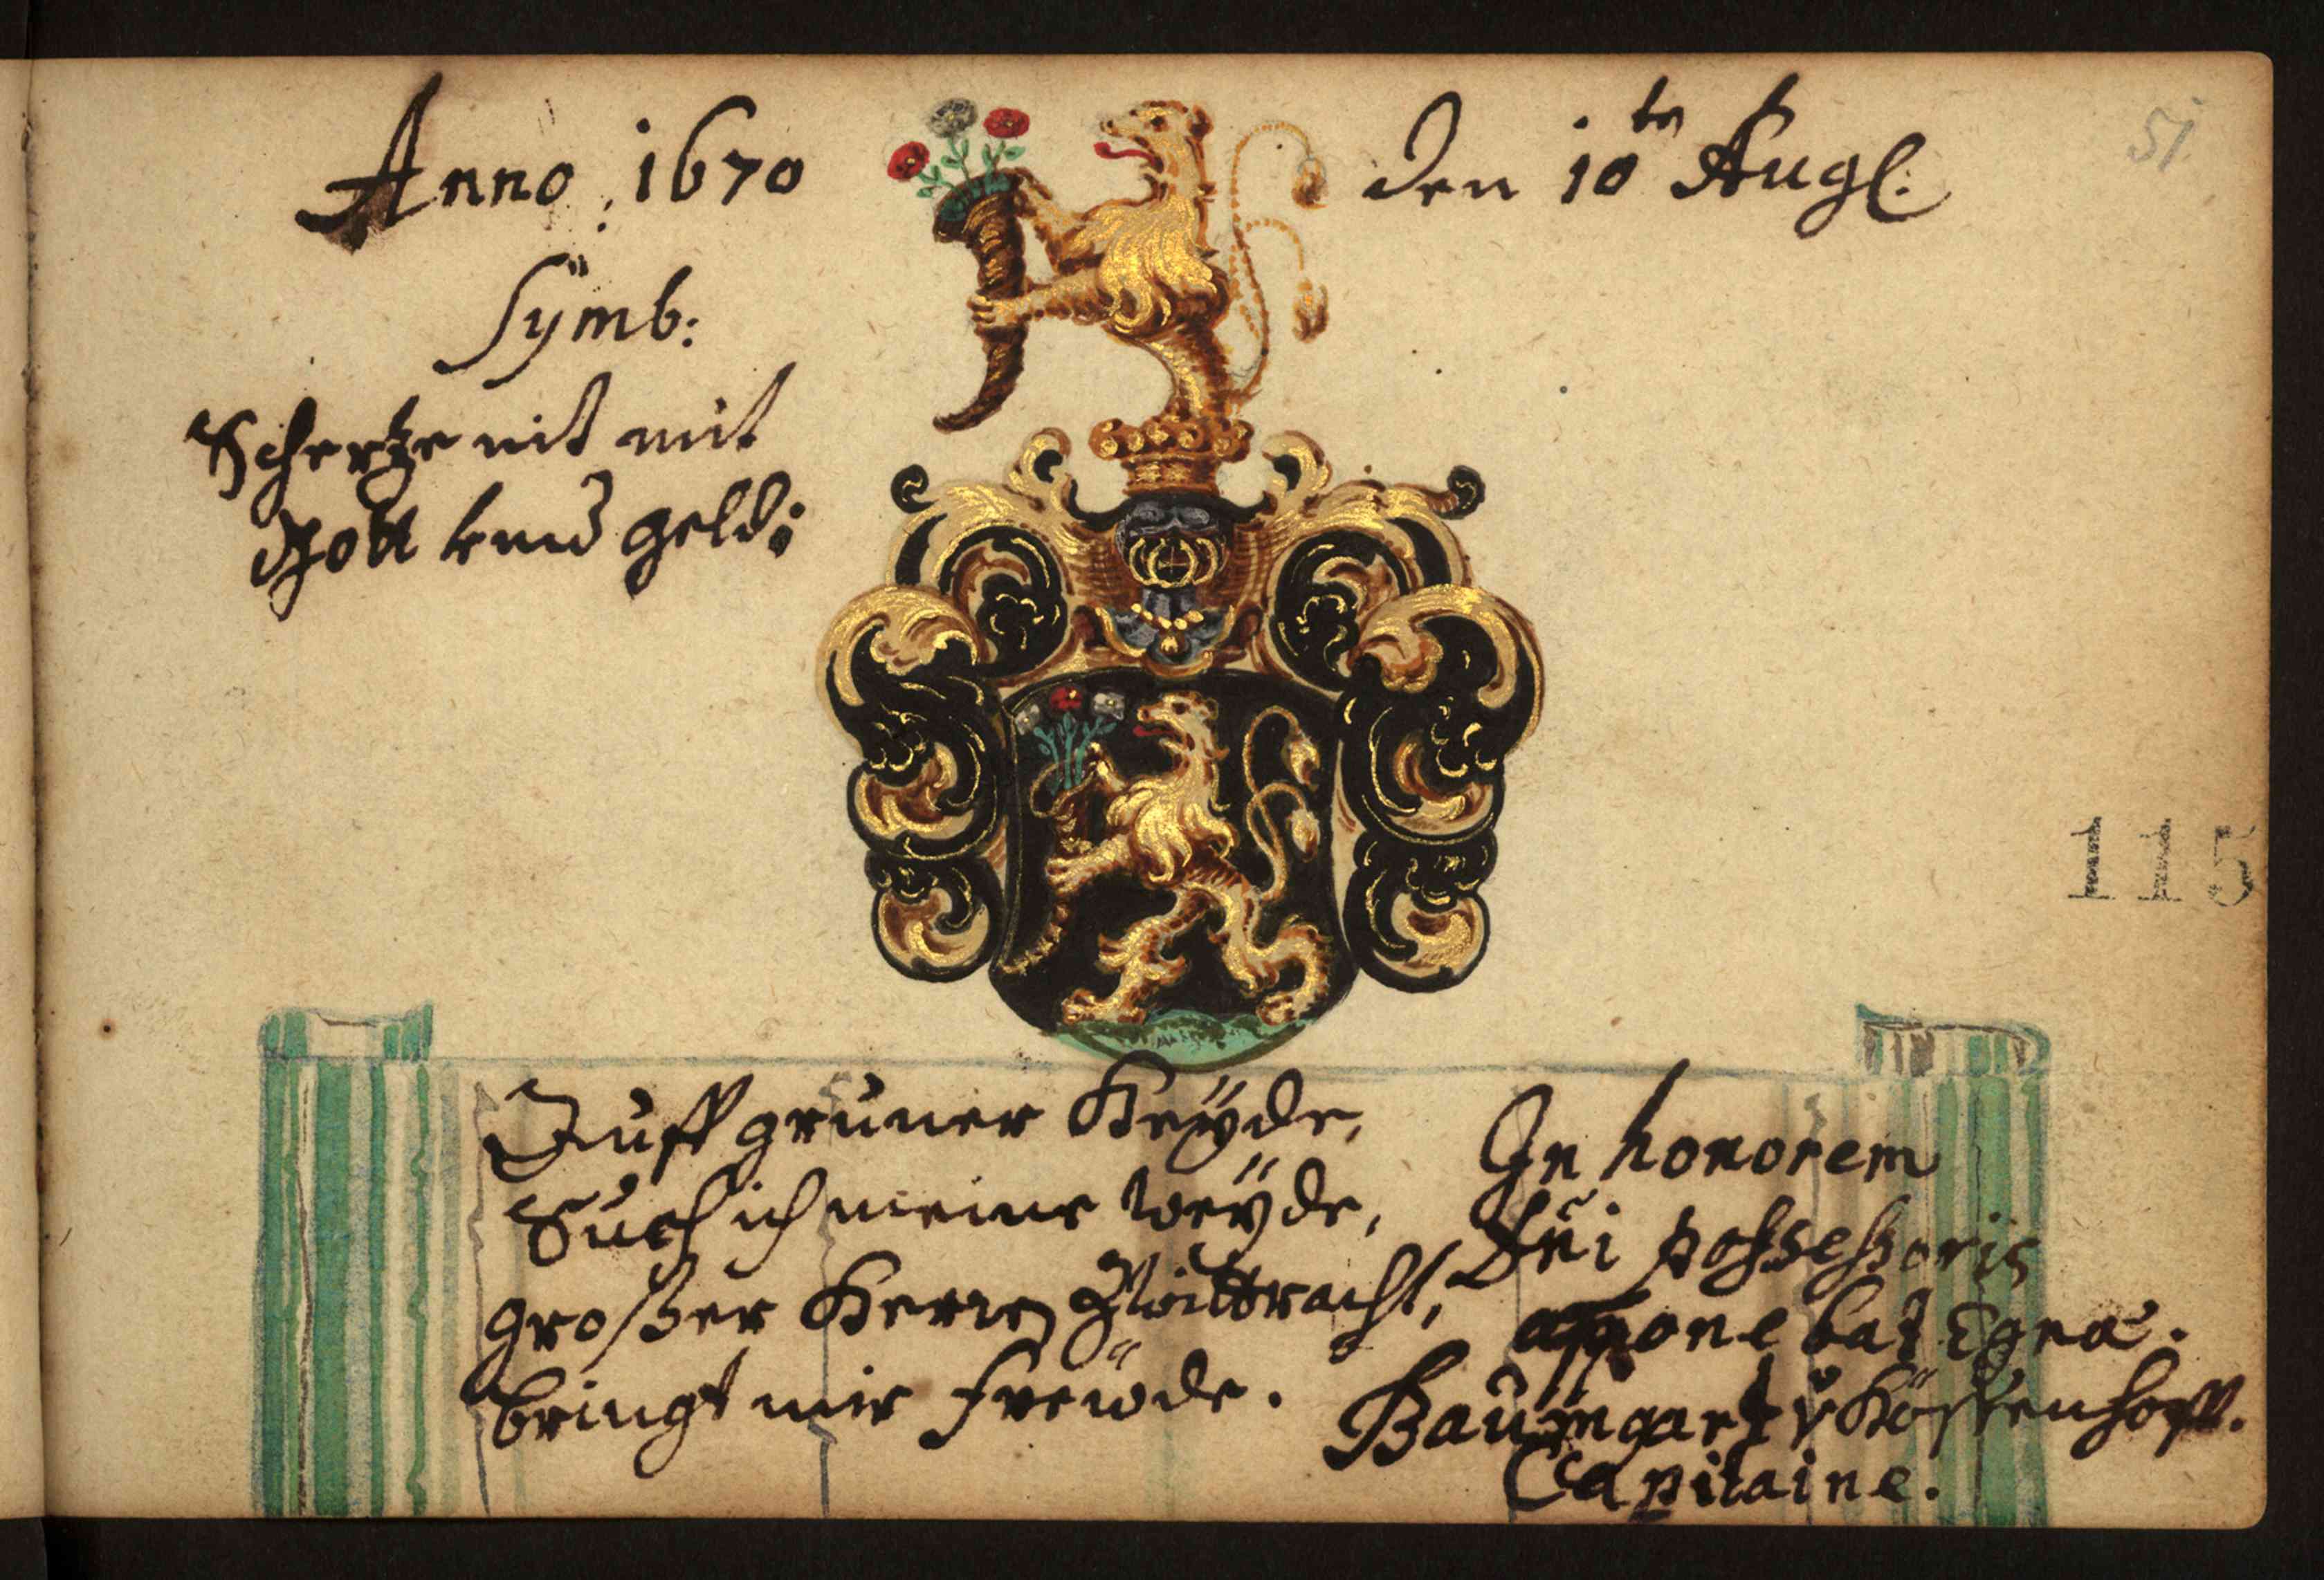 Anno 1670
den 10tn Augl:
51
Sÿmb:
Schertze nit mit
Gott vnd geld:
115
Auff gruner Heÿde,
Such ich meine weÿde,
großer Herren Zwittracht,
bringt mir Freüde.
In honorem
Dn̄i possessoris
apponebat
Baumgart v Kösten hoff.
Capitaine.